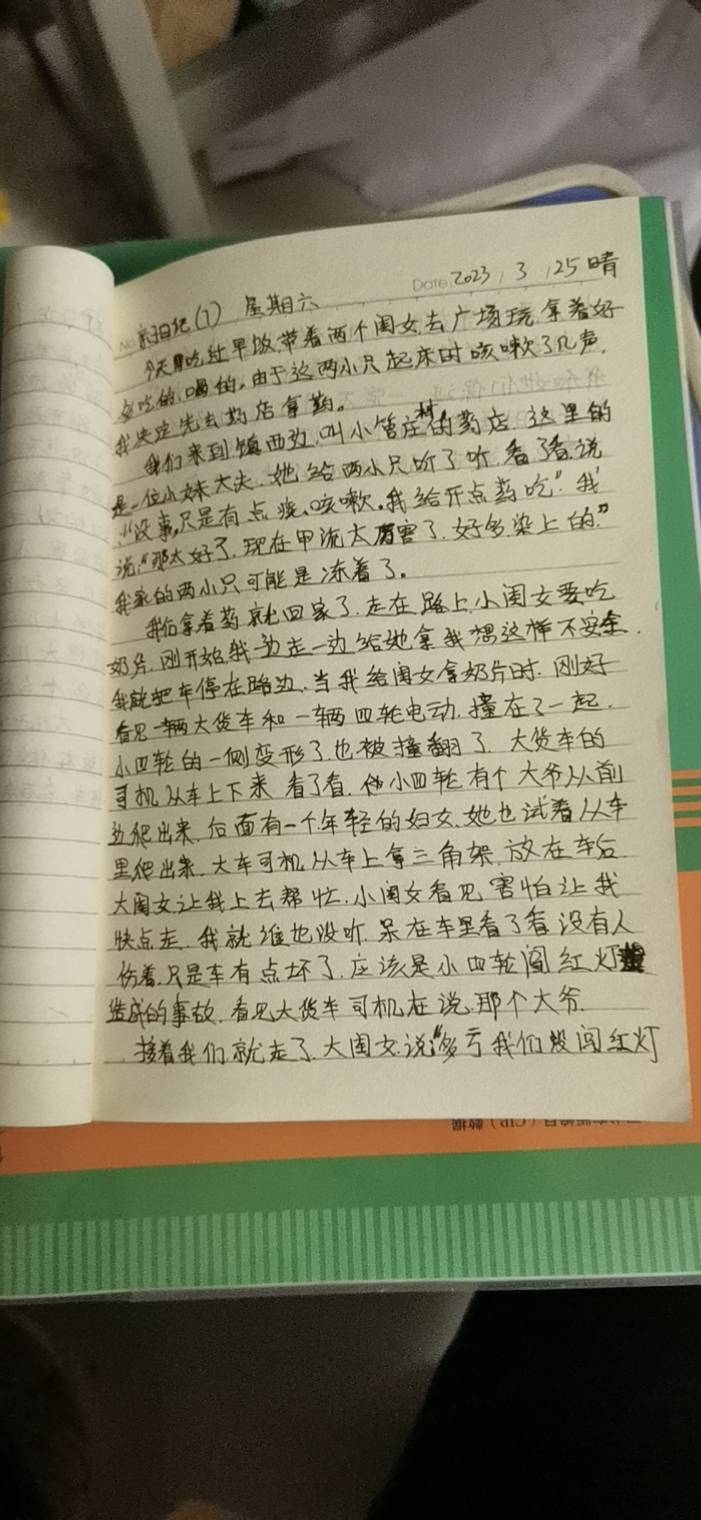 Date 2023 / 3 / 25 晴
No. 日记(1) 星期六
今天吃过早饭,带着两个闺女去广场玩,拿着好
多吃的、喝的,由于这两小只起床时咳嗽了几声,
我决定先去药店拿药。
我们来到镇西边,叫小管庄村的药店,这里的
是一位小妹大夫,她给两小只听了听,看了看,说
:“没事,只是有点痰、咳嗽,我给开点药吃”,我
说:“那太好了,现在甲流太厉害了,好多染上的”
我家的两小只可能是冻着了。
我们拿着药就回家了,走在路上,小闺女要吃
奶片,刚开始我边走一边给她拿,我想这样不安全,
我就把车停在路边,当我给闺女拿奶片时,刚好
看见一辆大货车和一辆四轮电动,撞在了一起,
小四轮的一侧变形了,也被撞翻了,大货车的
司机从车上下来,看了看,小四轮有个大爷从前
边爬出来,后面有一个年轻的妇女,她也试着从车
里爬出来,大车司机从车上拿三角架,放在车后,
大闺女让我上去帮忙,小闺女看见害怕让我
快点走,我就谁也没听,呆在车里看了看没有人
伤着,只是车有点坏了,应该是小四轮闯红灯
造成的事故,看见大货车司机在说那个大爷,
接着我们就走了,大闺女说:“多亏我们没闯红灯
(CIP)数据